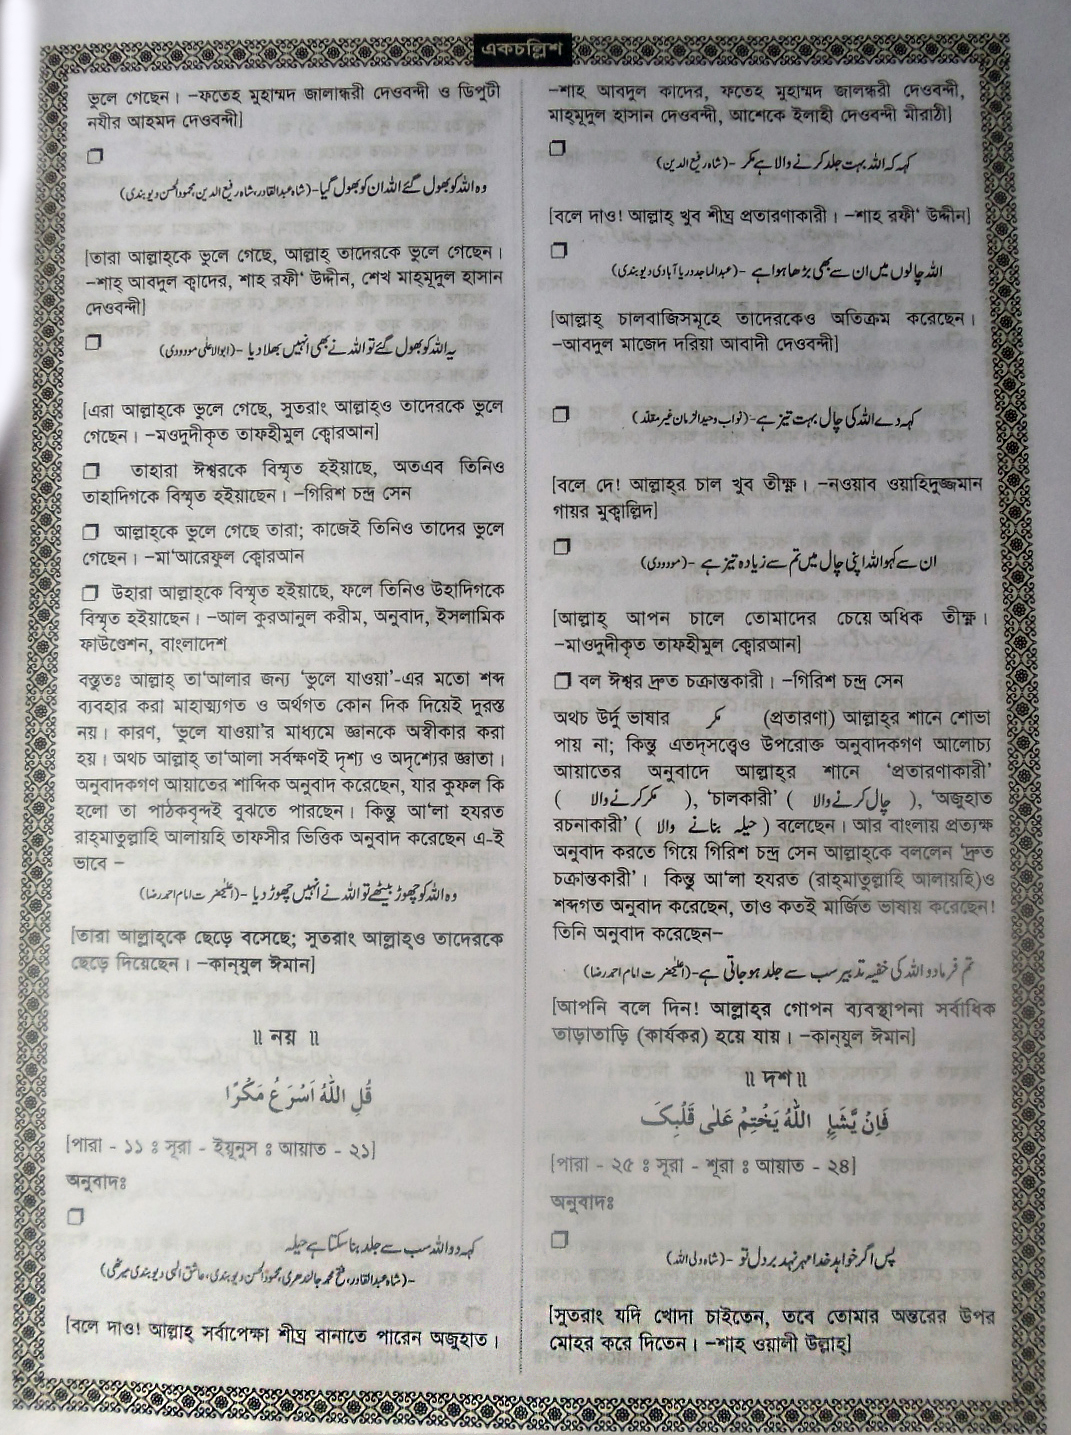 একচল্লিশ
ভুলে গেছেন। –ফতেহ মুহাম্মদ জালান্ধরী দেওবন্দী ও ডিপুটী
নযীর আহমদ দেওবন্দী]
وہ اللہ کو بھول گئے اللہ ان کو بھول گیا-(شاہ عبدالقادر، شاہ رفیع الدین، محمود الحسن دیوبندی)
[তারা আল্লাহ্‌কে ভুলে গেছে, আল্লাহ্ তাদেরকে ভুলে গেছেন।
–শাহ্ আবদুল ক্বাদের, শাহ্ রফী‘ উদ্দীন, শেখ মাহ্‌মূদুল হাসান
দেওবন্দী]
یہ اللہ کو بھول گئے تو اللہ نے بھی انہیں بھلا دیا -(ابوالاعلی مودودی)
[এরা আল্লাহ্‌কে ভুলে গেছে, সুতরাং আল্লাহ্‌ও তাদেরকে ভুলে
গেছেন। –মওদুদীকৃত তাফহীমুল ক্বোরআন]
তাহারা ঈশ্বরকে বিস্মৃত হইয়াছে, অতএব তিনিও
তাহাদিগকে বিস্মৃত হইয়াছেন। –গিরিশ চন্দ্র সেন
আল্লাহ্‌কে ভুলে গেছে তারা; কাজেই তিনিও তাদের ভুলে
গেছেন। –মা‘আরেফুল ক্বোরআন
উহারা আল্লাহ্‌কে বিস্মৃত হইয়াছে, ফলে তিনিও উহাদিগকে
বিস্মৃত হইয়াছেন। –আল কুরআনুল করীম, অনুবাদ, ইসলামিক
ফাউণ্ডেশন, বাংলাদেশ
বস্তুতঃ আল্লাহ্ তা‘আলার জন্য ‘ভুলে যাওয়া’-এর মতো শব্দ
ব্যবহার করা মাহাত্ম্যগত ও অর্থগত কোন দিক দিয়েই দুরস্ত
নয়। কারণ, ‘ভুলে যাওয়া’র মাধ্যমে জ্ঞানকে অস্বীকার করা
হয়। অথচ আল্লাহ্ তা‘আলা সর্বক্ষণই দৃশ্য ও অদৃশ্যের জ্ঞাতা।
অনুবাদকগণ আয়াতের শাব্দিক অনুবাদ করেছেন, যার কুফল কি
হলো তা পাঠকবৃন্দই বুঝতে পারছেন। কিন্তু আ‘লা হযরত
রাহ্‌মাতুল্লাহি আলায়হি তাফসীর ভিত্তিক অনুবাদ করেছেন এ-ই
ভাবে –
وہ اللہ کو چھوڑ بیٹھے تو اللہ نے انہیں چھوڑ دیا -(اعلیٰحضرت امام احمد رضا)
[তারা আল্লাহ্‌কে ছেড়ে বসেছে; সুতরাং আল্লাহ্‌ও তাদেরকে
ছেড়ে দিয়েছেন। –কান্‌যুল ঈমান]
॥ নয় ॥
قُلِ اللّٰهُ اَسْرَعُ مَكْرًا
[পারা - ১১ ঃ সূরা - ইয়ূনুস ঃ আয়াত - ২১]
অনুবাদঃ
کہہ دو اللہ سب سے جلد بنا سکتا ہے حیلہ
-(شاہ عبدالقادر، فتح محمد جالندھری، محمود الحسن دیوبندی، عاشق الٰہی دیوبندی میرٹھی)
[বলে দাও! আল্লাহ্ সর্বাপেক্ষা শীঘ্র বানাতে পারেন অজুহাত।
–শাহ্ আবদুল কাদের, ফতেহ মুহাম্মদ জালন্ধরী দেওবন্দী,
মাহ্‌মূদুল হাসান দেওবন্দী, আশেকে ইলাহী দেওবন্দী মীরাঠী]
کہہ کہ اللہ بہت جلد کرنے والا ہے مکر -(شاہ رفیع الدین)
[বলে দাও! আল্লাহ্ খুব শীঘ্র প্রতারণাকারী। –শাহ রফী‘ উদ্দীন]
اللہ چالوں میں ان سے بھی بڑھا ہوا ہے -(عبدالماجد دریا آبادی دیوبندی)
[আল্লাহ্ চালবাজিসমূহে তাদেরকেও অতিক্রম করেছেন।
–আবদুল মাজেদ দরিয়া আবাদী দেওবন্দী]
کہہ دے اللہ کی چال بہت تیز ہے -(نواب وحید الزمان غیر مقلد)
[বলে দে! আল্লাহ্‌র চাল খুব তীক্ষ্ণ। –নওয়াব ওয়াহিদুজ্জমান
গায়র মুক্বাল্লিদ]
ان سے کہو اللہ اپنی چال میں تم سے زیادہ تیز ہے -(مودودی)
[আল্লাহ্ আপন চালে তোমাদের চেয়ে অধিক তীক্ষ্ণ।
–মাওদুদীকৃত তাফহীমুল ক্বোরআন]
বল ঈশ্বর দ্রুত চক্রান্তকারী। –গিরিশ চন্দ্র সেন
অথচ উর্দু ভাষার مکر (প্রতারণা) আল্লাহ্‌র শানে শোভা
পায় না; কিন্তু এতদ্‌সত্ত্বেও উপরোক্ত অনুবাদকগণ আলোচ্য
আয়াতের অনুবাদে আল্লাহ্‌র শানে ‘প্রতারণাকারী’
( مکر کرنے والا ), ‘চালকারী’ ( چال کرنے والا ), ‘অজুহাত
রচনাকারী’ ( حیلہ بنانے والا ) বলেছেন। আর বাংলায় প্রত্যক্ষ
অনুবাদ করতে গিয়ে গিরিশ চন্দ্র সেন আল্লাহ্‌কে বললেন ‘দ্রুত
চক্রান্তকারী’। কিন্তু আ‘লা হযরত (রাহ্‌মাতুল্লাহি আলায়হি)ও
শব্দগত অনুবাদ করেছেন, তাও কতই মার্জিত ভাষায় করেছেন!
তিনি অনুবাদ করেছেন–
تم فرما دو اللہ کی خفیہ تدبیر سب سے جلد ہو جاتی ہے-(اعلیٰحضرت امام احمد رضا)
[আপনি বলে দিন! আল্লাহ্‌র গোপন ব্যবস্থাপনা সর্বাধিক
তাড়াতাড়ি (কার্যকর) হয়ে যায়। –কান্‌যুল ঈমান]
॥ দশ ॥
فَاِنْ يَّشَاِ اللّٰهُ يَخْتِمْ عَلٰى قَلْبِكَ
[পারা - ২৫ ঃ সূরা - শূরা ঃ আয়াত - ২৪]
অনুবাদঃ
پس اگر خواہد خدا مہر نہد بر دل تو -(شاہ ولی اللہ)
[সুতরাং যদি খোদা চাইতেন, তবে তোমার অন্তরের উপর
মোহর করে দিতেন। –শাহ্ ওয়ালী উল্লাহ্]